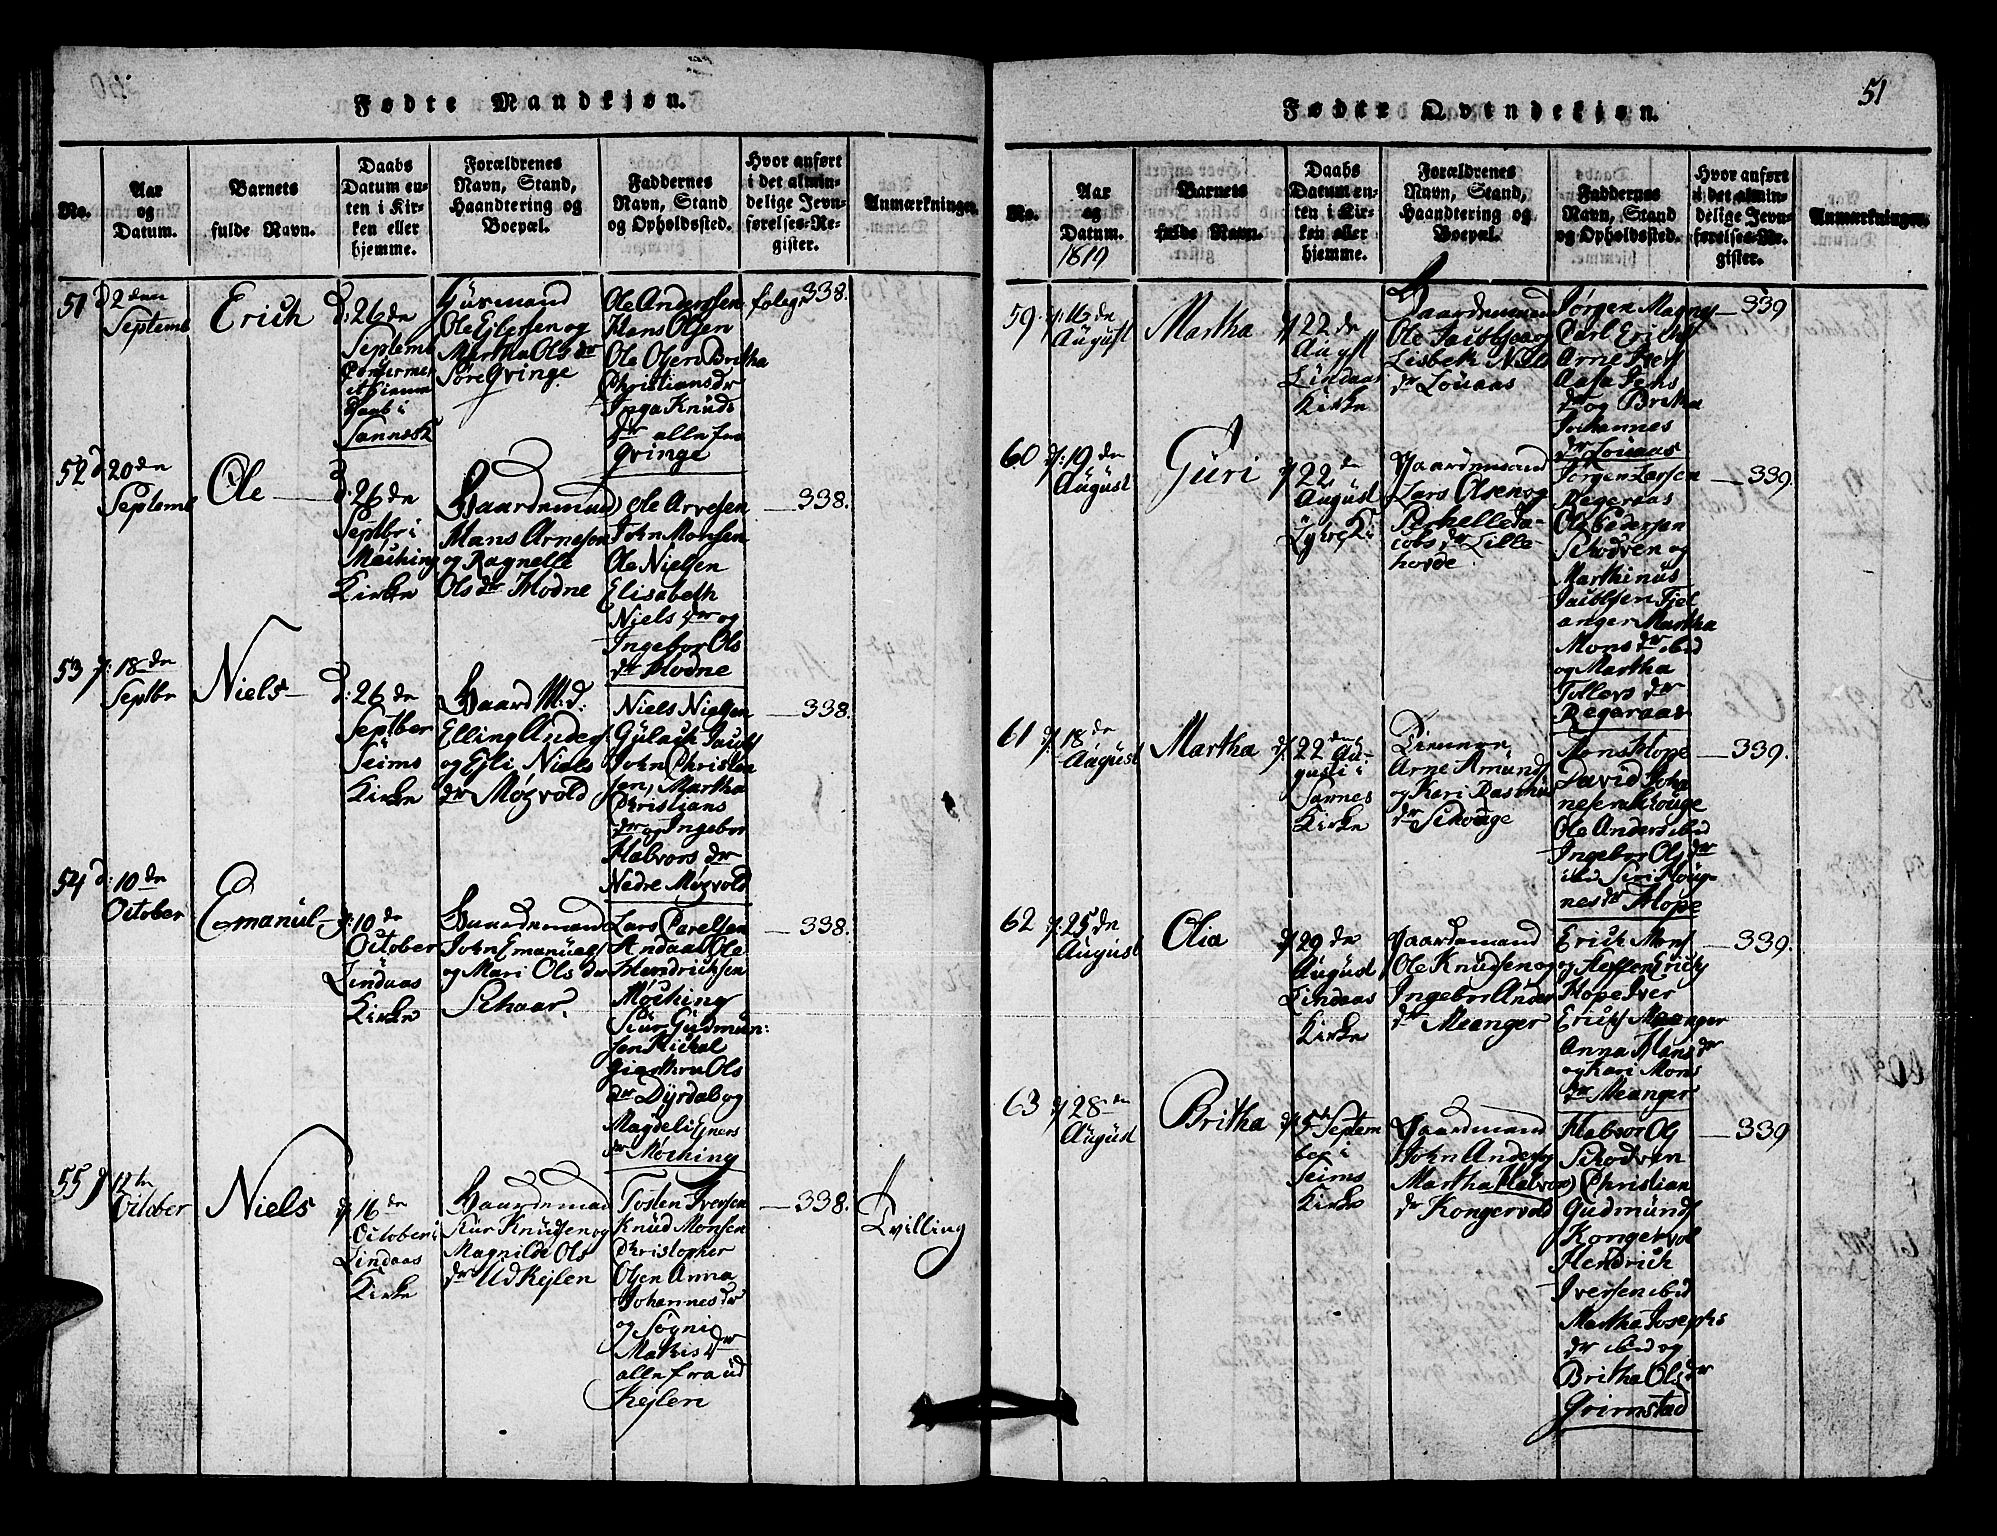 Fødte Mandkjøn.
No.
Aar
og
Datum.
Barnets
fulde Navn.
Daabs
Datum en-
ten i Kir-
ken eller
hjemme.
Forældrenes
Navn, Stand,
Haandtering og
Boepæl.
Faddernes
Navn, Stand
og Opholdssted.
Hvor anført
i det almin-
delige Jevn-
førelses-Re-
gister.
Anmærkninger.
51
d 2den
Septemb
Erich
d: 26 de
Septemb
Daab i
Gaurmand
Ole Ejlersen og
Martha Ols dr
Søre Qvinge
Ole Anderssen
Hans Olsen
Ole Olsen Britha
Christians dr
Inga Knuds
dr alle fra
Qvinge
folge 338.
52
d: 20 de
Septemb
Ole
d: 26 de
Septbr i
Møching
Kirke
Gaardemand
Mans Arnesen
og Ragnelle
Ols dr Hodne
Ole Arvesen
John Monsen
Ole Nielsen
Elisabeth
Niels dr og
Ingebor Ols
dr Hodne
338.
53
d: 18 de
Septbr
Niels
d: 26 de
September
Seims
Kirke
Gaard M.d.
Elling Anders
og Eli Niels
dr Møgvold
Niels Nielsen
Gulach Jacobs
John Christen
sen, Martha
Christians
dr og Ingebor
Halvors dr
Nedre Møgvold
338.
54
d: 10 de
October
Emanuel
d: 10 de
October
Lindaas
Kirke
Gaardemand
John Emanuels
og Mari Ols dr
Schaar.
Lars Carelsen
Andaas Ole
Hendrichsen
Møching
Siur Gudmun:
sen
Ols
dr Dyrdal og
Magdeli Ejners
dr Møching
338.
55
d 12te
October
Niels
d 16 de
October i
Lindaas
Kirke
Gaardemand
Knudsen og
Magnilde Ols
dr Udkejlen
Tosten Iversen
Knud Monsen
Christopher
Olsen Anna
Johannes dr
og Søgni
Makis dr
alle fra ud
Kejlen
338.
Tvilling
51
Fødte Qvindekjøn.
No.
Aar
og
Datum.
1819
Barnets
fulde Navn.
Daabs
Datum en-
ten i Kir-
ken eller
hjemme.
Forældrenes
Navn, Stand,
Haandtering og
Boepæl.
Faddernes
Navn, Stand
og Opholdssted.
Hvor anført
i det almin-
delige Jevn-
førelses-Re-
gister.
Anmærkninger.
59
d: 16 de
August
Martha
d 22 de
Augst
Lindaas
Kirke
Gaardemand
Ole Jacobs og
Lisbek Niels
dr Louaas
Jørgen Magny
Carl Erichs
Arne Ivers
Aasa Jens
dr og Britha
Johannes
dr Louaas
339
60
d: 19 de
August
Guri
d 22 de
August
i
Lygre Ki
Gaardemand
Lars Olsen og
Pernelle Ja-
cobs dr Lille
horde
Jørgen Larsen
Regeraas
Ole Pedersen
Schodven og
Marthinus
Jacobsen Fjel
anger Martha
Mons dr ibid
og Martha
Tollevs dr
Regeraas
339.
61
d: 18 de
August
Martha
d: 22 den Au:
gusti i
Sannes
Kirke
Arne Amunds
og Kari Rasmus
dr Schouge
Mons Hope
David Joha
nesen Schouge
Ole Anders ibid
Ingebor Ols dr
ibid Siri Houg
nes dr Hope
339.
62
d: 25 de
August
Olia
d 29 de
August
Lindaas
Kirke
Gaardemand
Ole Knudsen og
Ingebor Anders
dr Meanger
Erich Mons
og Steffen Erichs
Hope Iver
Erichs Meanger
Anna Hans dr
og Kari Mons
dr Meanger
339.
63
d 28 de
August
Britha
d 5 Septem
ber i
Seims
Kirke
Gaardmand
John Anders og
Martha Halvors
dr Kongervold
Halvor Ols
Schodven
Christian
Gudmunds
Kongervol
Hendrich
Iversen ibid
Martha Josephs
dr ibid og
Britha Ols dr
Grimstad
339